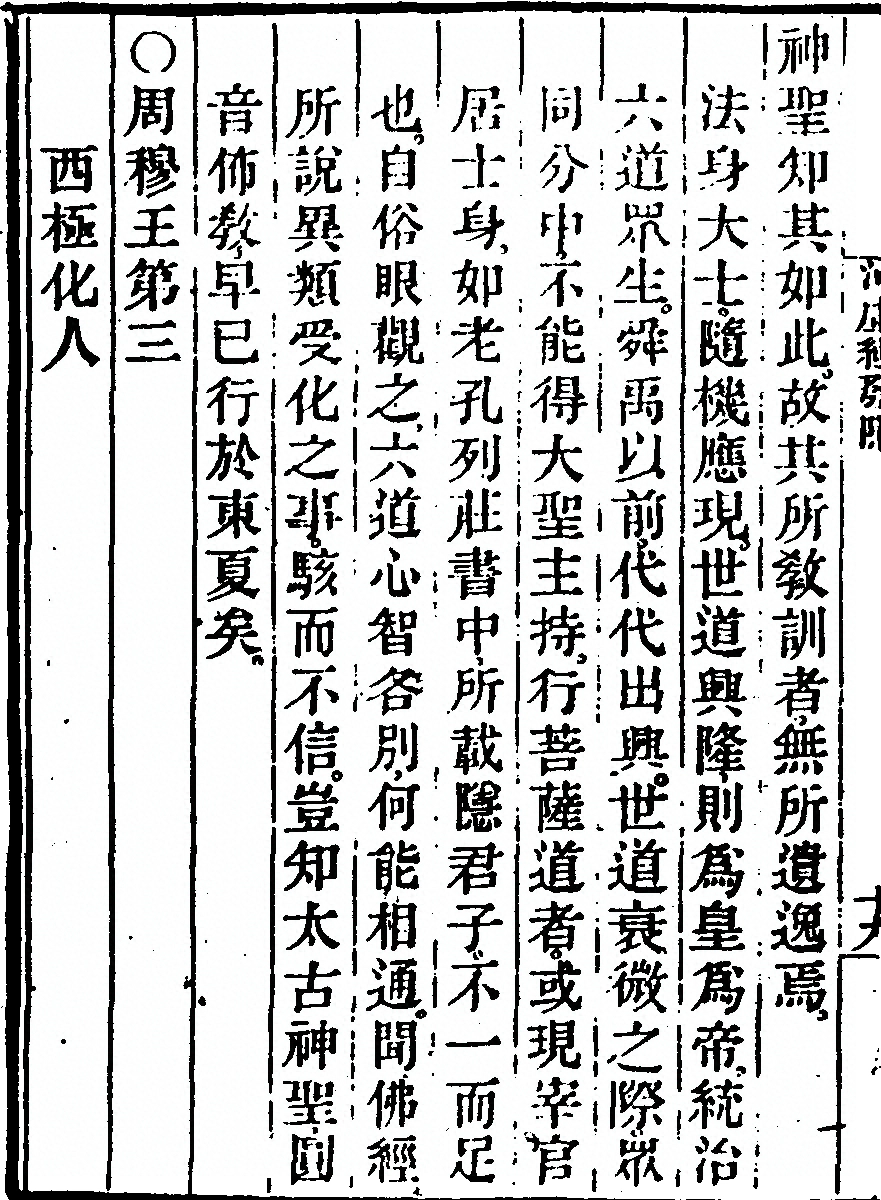 神聖知其如此。故其所教訓者、無所遺逸焉、
法身大士。隨機應現、世道興隆、則爲皇爲帝、統治
六道眾生。舜禹以前、代代出興。世道衰微之際、眾
同分中、不能得大聖主持、行菩薩道者。或現宰官
居士身、如老孔列莊書中、所載隱君子、不一而足
也。自俗眼觀之、六道心智各別、何能相通。聞佛經
所說異類受化之事。駭而不信。豈知太古神聖、圓
音佈教、早已行於東夏矣。
○周穆王第三
西極化人